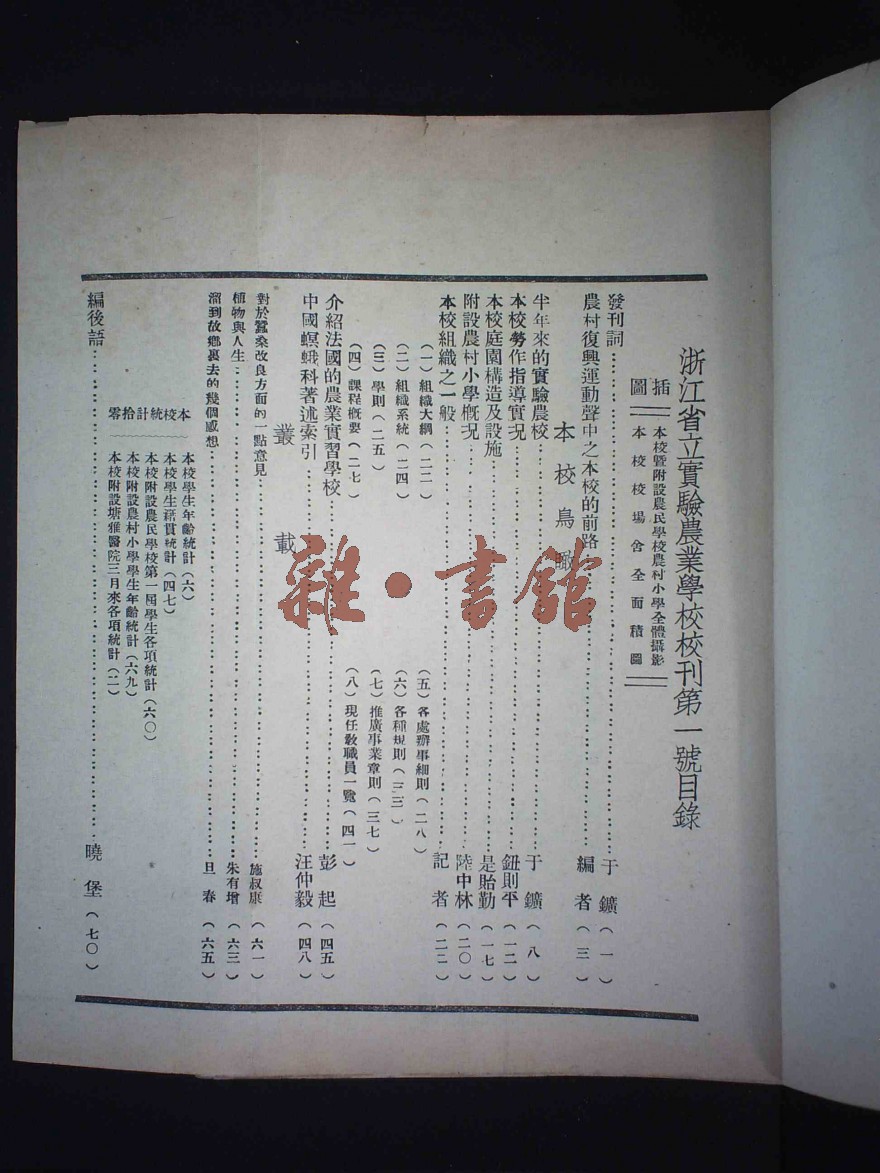 浙江省立實驗農業學校校刊第一號目錄
插圖
本校暨附設農民學校農村小學全體攝影
本校校場舍全面積圖
發刊詞……于鑛(一)
農村復興運動聲中之本校的前路……編者(三)
本校鳥瞰
半年來的實驗農校……于鑛(八)
本校勞作指導實況……鈕則平(一二)
本校庭園構造及設施……是貽勤(一七)
附設農村小學概況……陸中林(二〇)
本校組織之一般……記者(二二)
(一)組織大綱(二二)
(二)組織系統(二四)
(三)學則(二五)
(四)課程概要(二七)
(五)各處辦事細則(二八)
(六)各種規則(三三)
(七)推廣事業章則(三七)
(八)現任教職員一覽(四一)
介紹法國的農業實習學校……彭起(四五)
中國螟蛾科著述索引……汪仲毅(四八)
叢載
對於蠶桑改良方面的一點意見……施叔康(六一)
植物與人生……朱有增(六三)
溜到故鄉裏去的幾個感想……旦春(六五)
本校統計拾零
本校學生年齡統計(六)
本校學生籍貫統計(四七)
本校附設農民學校第一屆學生各項統計(六〇)
本校附設農村小學學生年齡統計(六九)
本校附設塘雅醫院三月來各項統計(二)
編後語……曉堡(七〇)
雜·書館